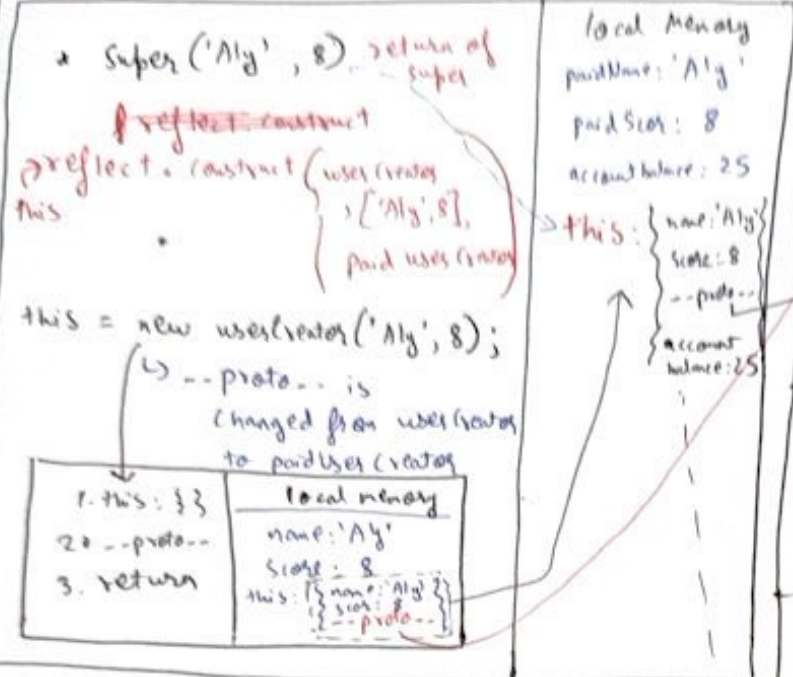 * super('Aly', 8) return of
super
reflect.construct
reflect.construct(userCreator
this
, ['Aly', 8],
paid userCreator
this = new userCreator('Aly', 8);
↳ --proto-- is
changed from userCreator
to paidUserCreator
1. this: {}
2. --proto--
3. return
local memory
name: 'Aly'
score: 8
this: { name: 'Aly' }
scor: 8
--proto--
local Memory
paidName: 'Aly'
paidScor: 8
account balance: 25
this: { name: 'Aly' }
score: 8
--proto--
account
balance: 25